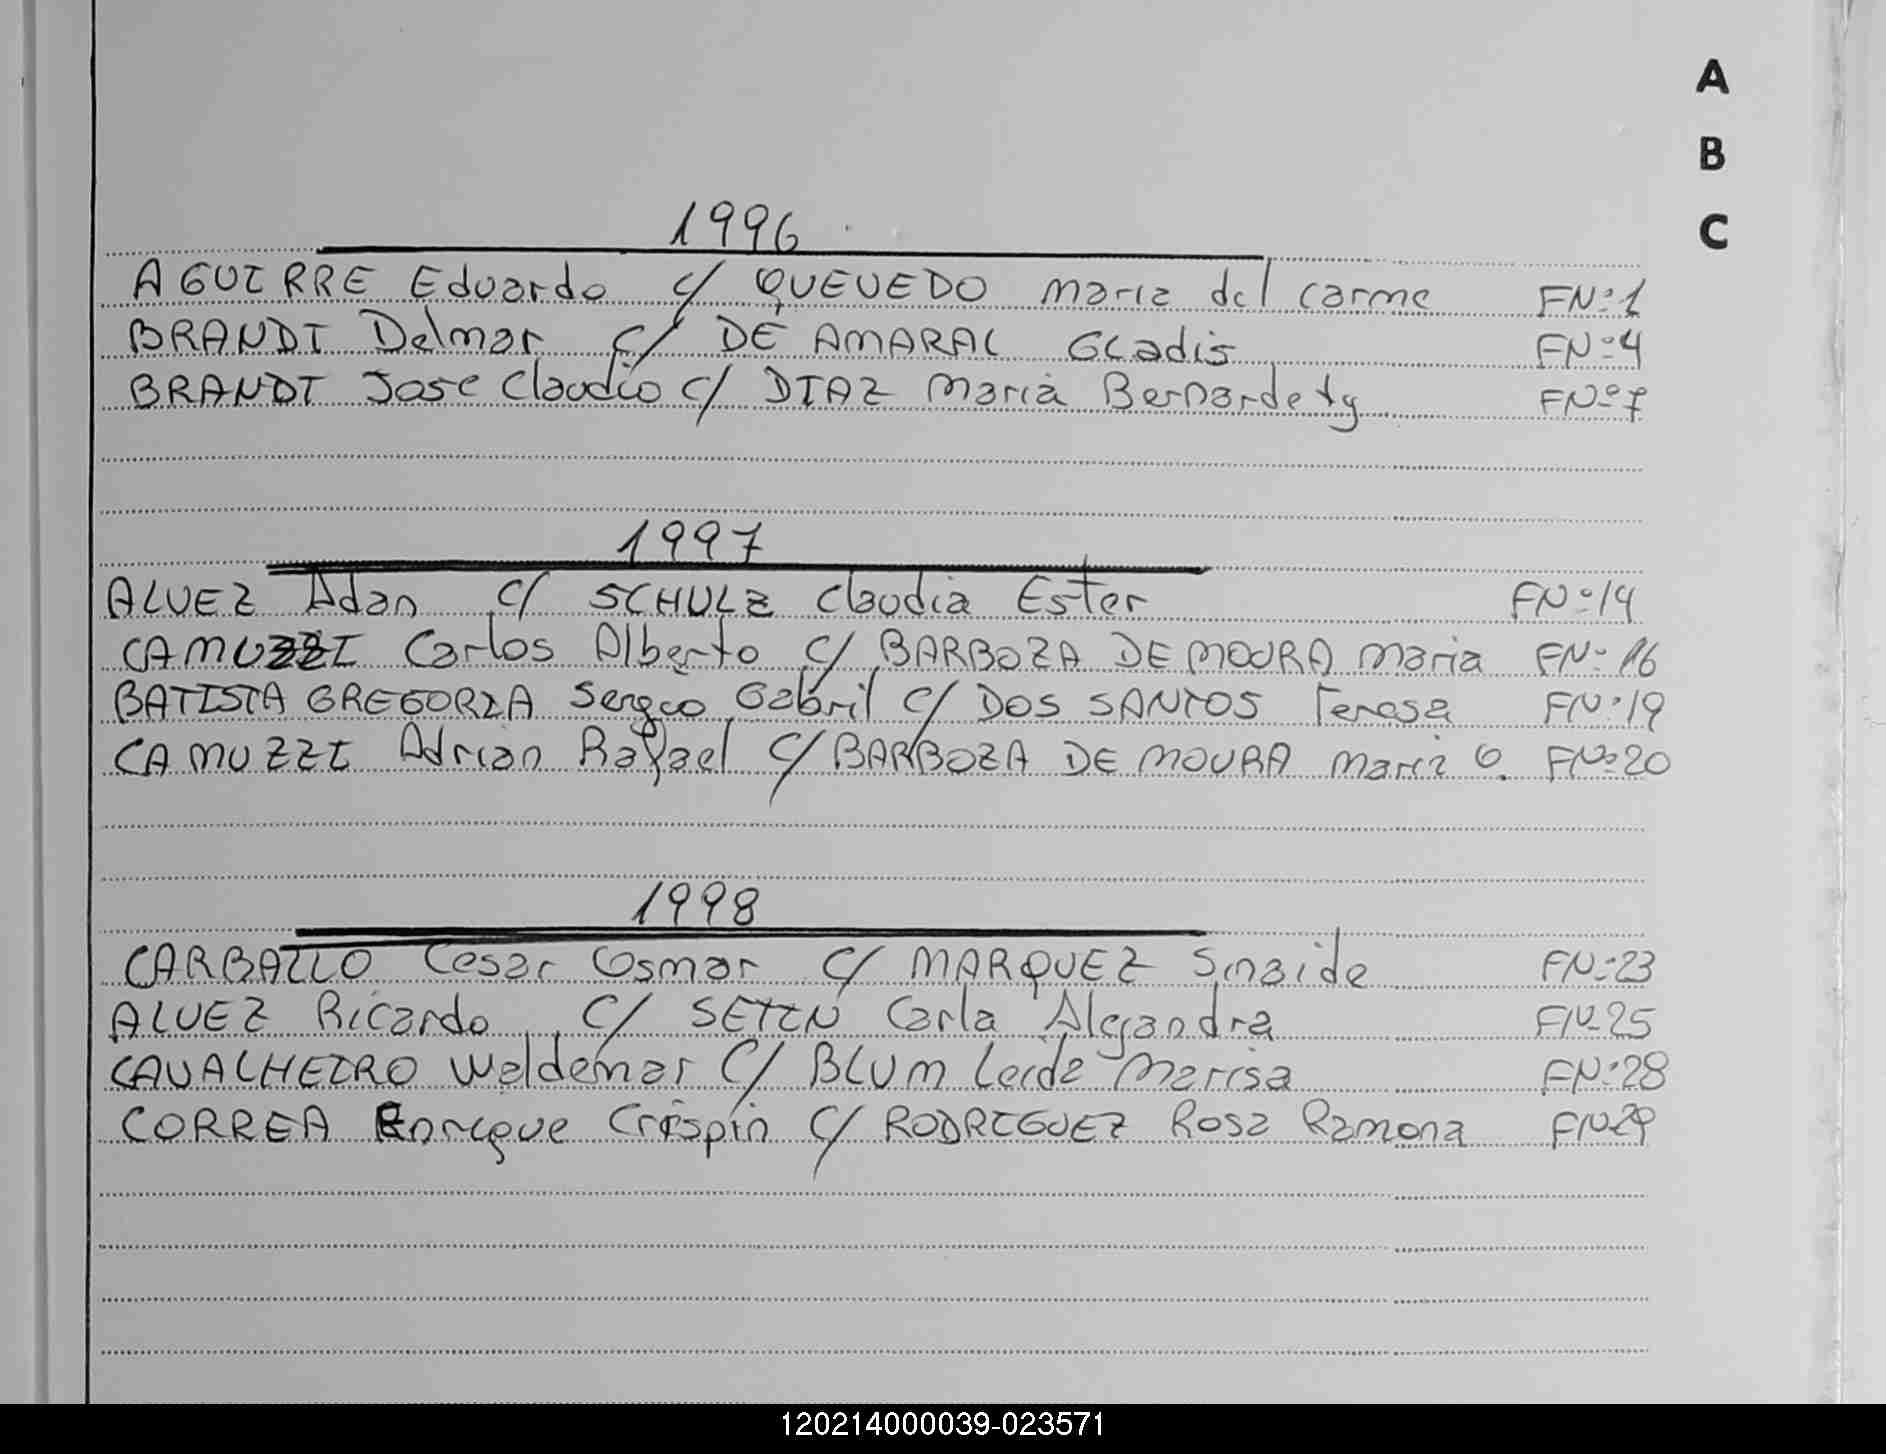 A
B
C
1996
AGUIRRE Eduardo c/ QUEVEDO maria del carme FNº1
BRANDT Delmar c/ DE AMARAL GLadis FNº4
BRANDT Jose Claudio c/ DIAZ Maria Bernardety FNº7
1997
ALVEZ Adan c/ SCHULZ Claudia Ester FNº14
CAMUZZI Carlos Alberto c/ BARBOZA DE MOURA Maria FNº16
BATISTA GREGORIA Sergio Gabril c/ DOS SANTOS Teresa FNº19
CAMUZZI Adrian Rafael c/ BARBOZA DE MOURA Maria O. FNº20
1998
CARBALLO Cesar Osmar c/ MARQUEZ Sinaide FNº23
ALVEZ Ricardo c/ SETIN Carla Alejandra FNº25
CAVALHEIRO Waldemar c/ BLUM Leida Marisa FNº28
CORREA Enrique Crispin c/ RODRIGUEZ Rosa Ramona FNº29
120214000039-023571